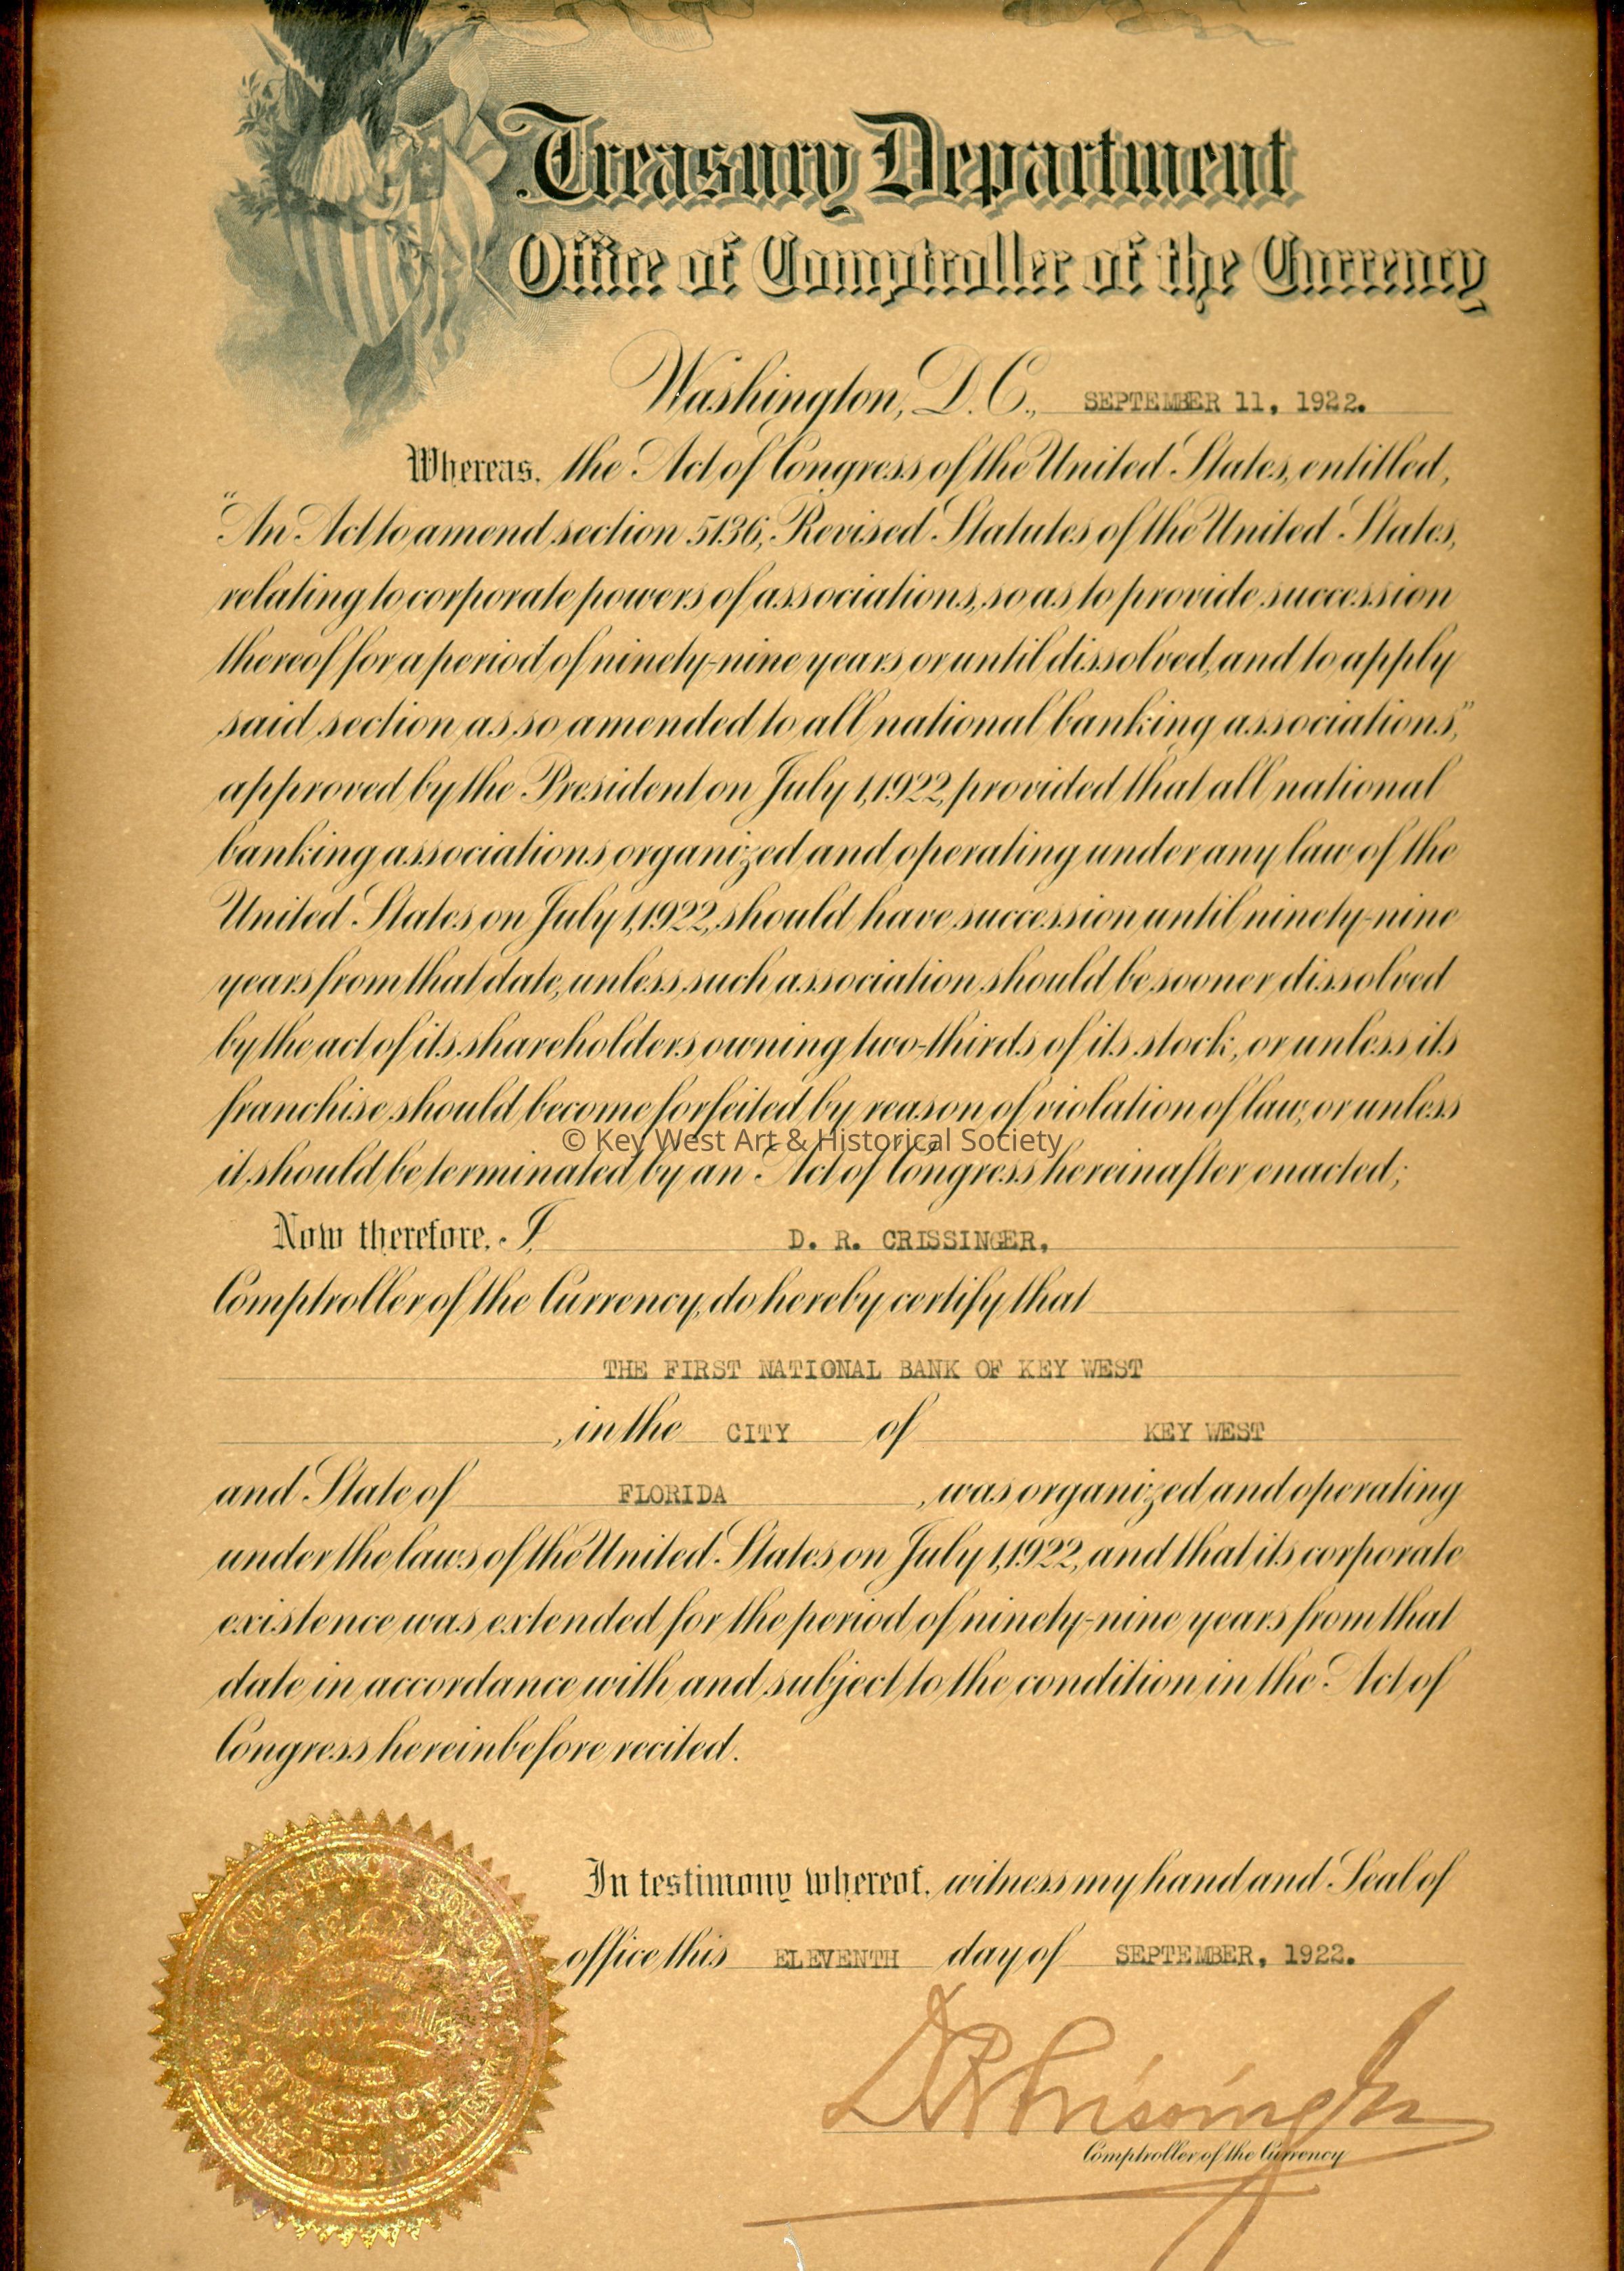 Treasury Department
Office of Comptroller of the Currency
Washington, D. C., SEPTEMBER 11, 1922.
Whereas, the Act of Congress of the United States, entitled,
"An Act to amend section 5136, Revised Statutes of the United States,
relating to corporate powers of associations, so as to provide succession
thereof for a period of ninety-nine years or until dissolved, and to apply
said section as so amended to all national banking associations,"
approved by the President on July 1, 1922, provided that all national
banking associations organized and operating under any law of the
United States on July 1, 1922, should have succession until ninety-nine
years from that date, unless such association should be sooner dissolved
by the act of its shareholders owning two-thirds of its stock, or unless its
franchise should become forfeited by reason of violation of law, or unless
© Key West Art & Historical Society
it should be terminated by an Act of Congress hereinafter enacted;
Now therefore, I, D. R. CRISSINGER,
Comptroller of the Currency, do hereby certify that
THE FIRST NATIONAL BANK OF KEY WEST
, in the CITY of KEY WEST
and State of FLORIDA, was organized and operating
under the laws of the United States on July 1, 1922, and that its corporate
existence was extended for the period of ninety-nine years from that
date in accordance with and subject to the condition in the Act of
Congress hereinbefore recited.
In testimony whereof, witness my hand and Seal of
office this ELEVENTH day of SEPTEMBER, 1922.
D R Crissinger
Comptroller of the Currency